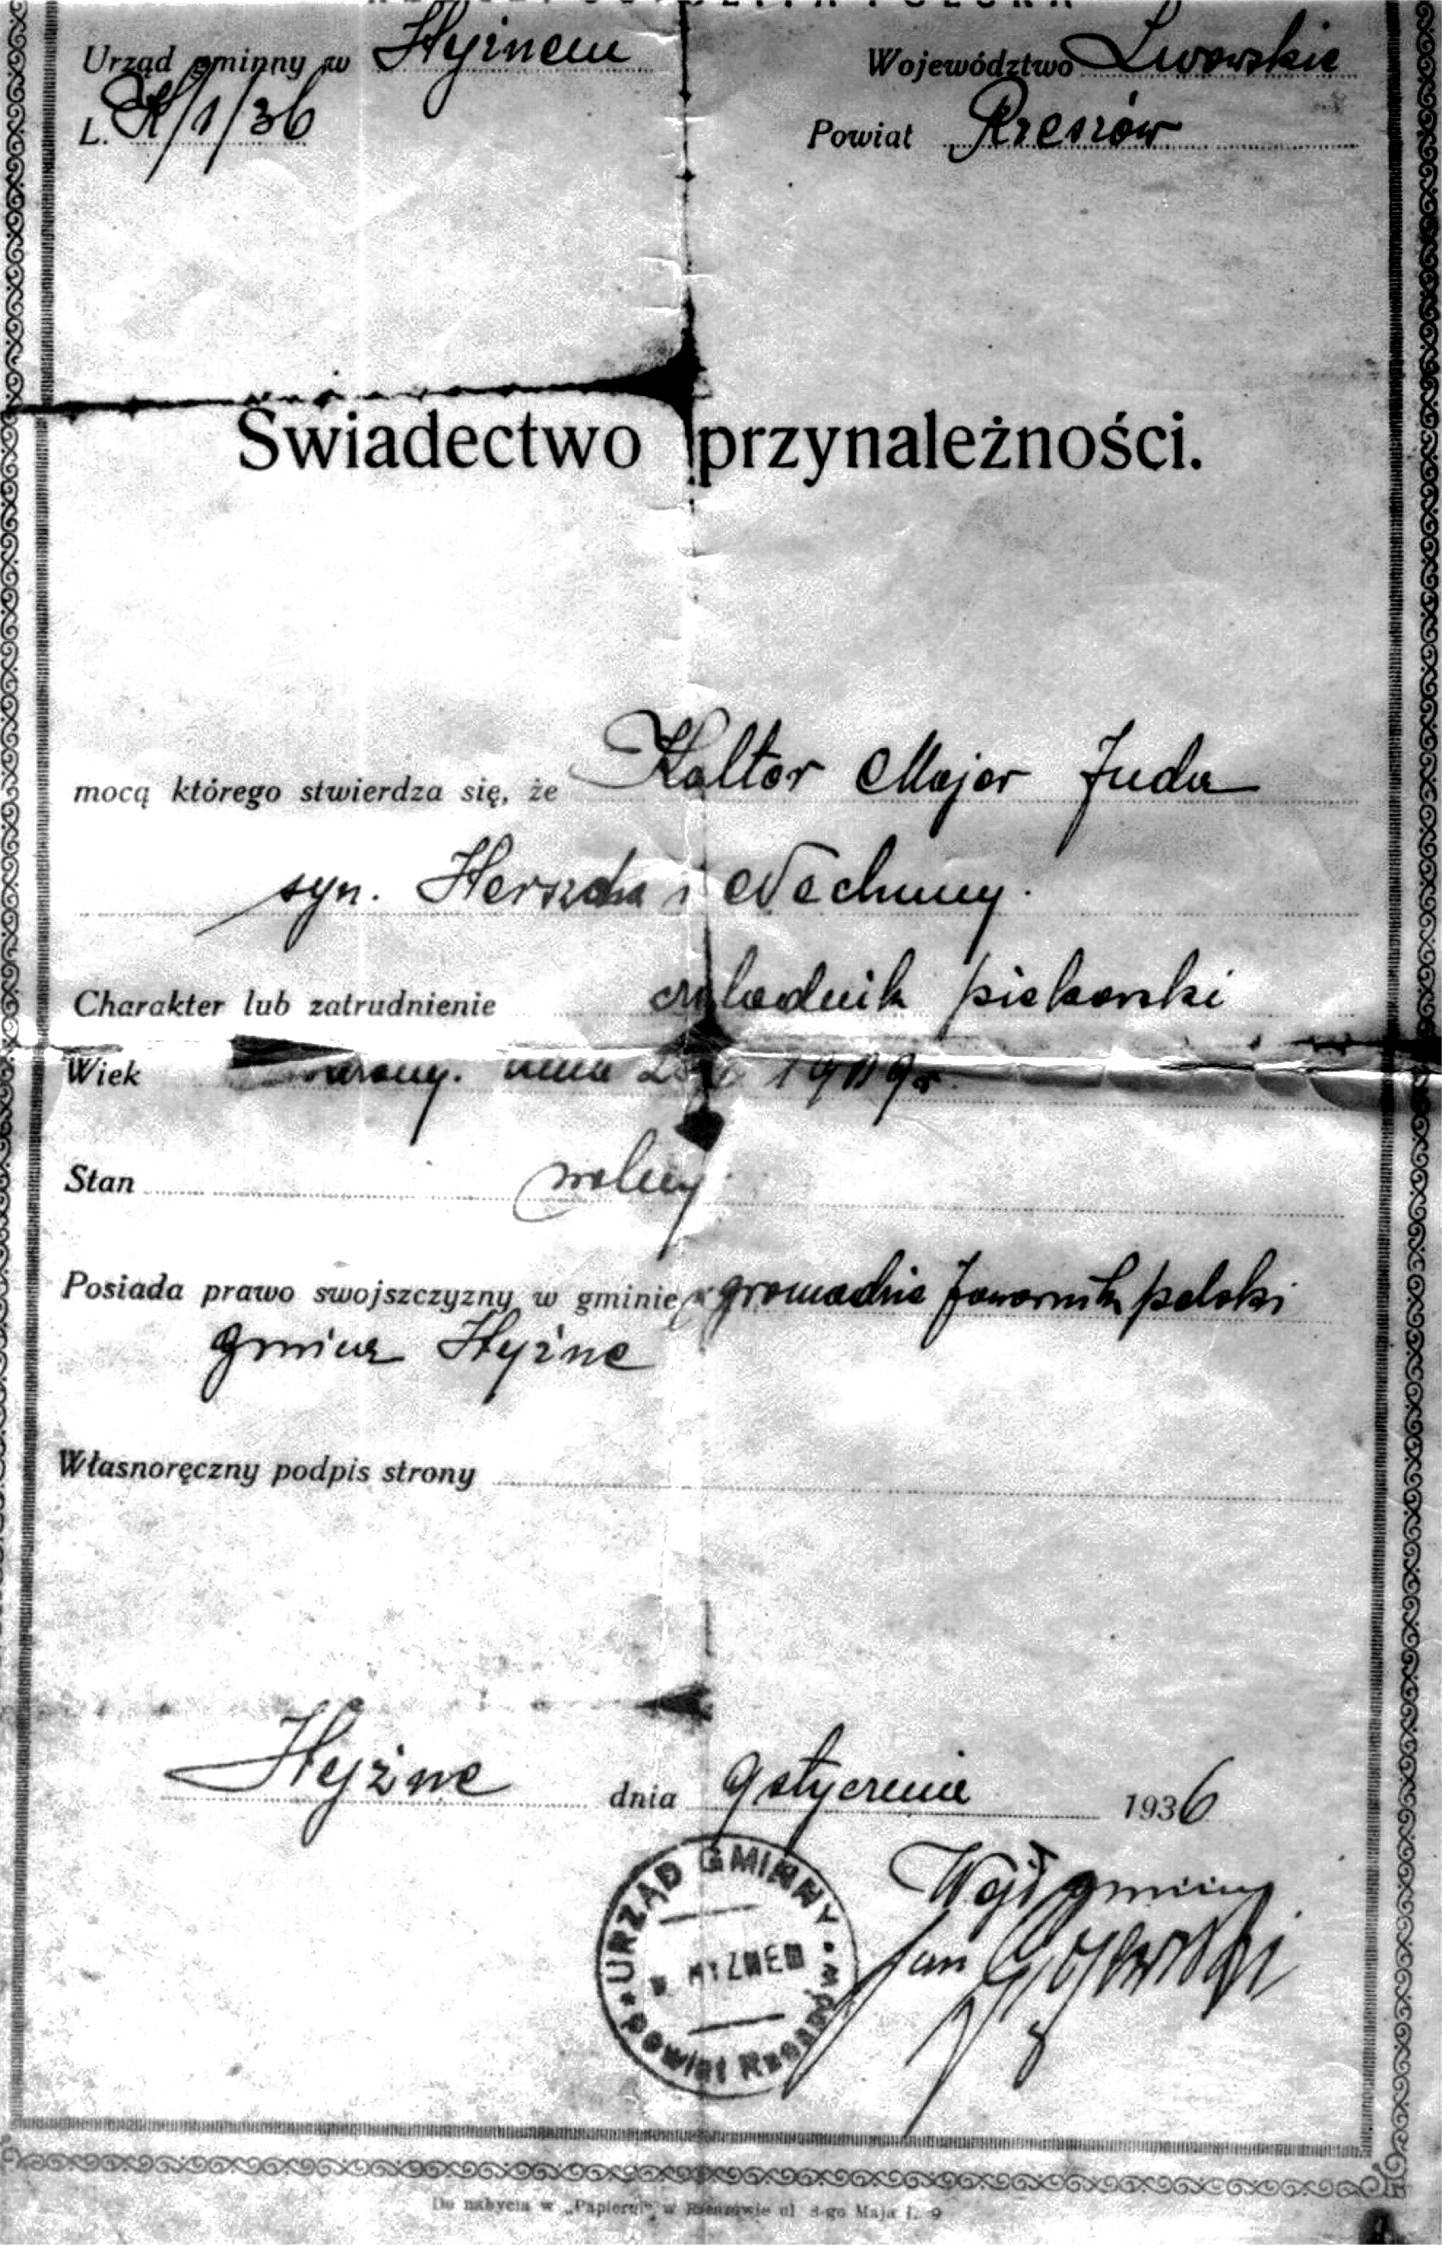 RZECZPOSPOLITA POLSKA
Urząd gminny w Hyżnem Województwo Lwowskie
L. K/1/36 Powiat Rzeszów
Świadectwo przynależności.
mocą którego stwierdza się, że Kalter Majer Juda
syn. Herscha i Nechumy.
Charakter lub zatrudnienie czeladnik piekarski
Wiek urodz. dnia 1909 r.
Stan wolny
Posiada prawo swojszczyzny w gminie gromadzie Jawornik polski
gmina Hyżne
Własnoręczny podpis strony
Hyżne dnia 9 stycznia 1936
Wójt gminy
Jan
URZĄD GMINNY w HYZNEM powiat Rzeszów
Do nabycia w „Papierni" w Rzeszowie ul 3-go Maja L. 9